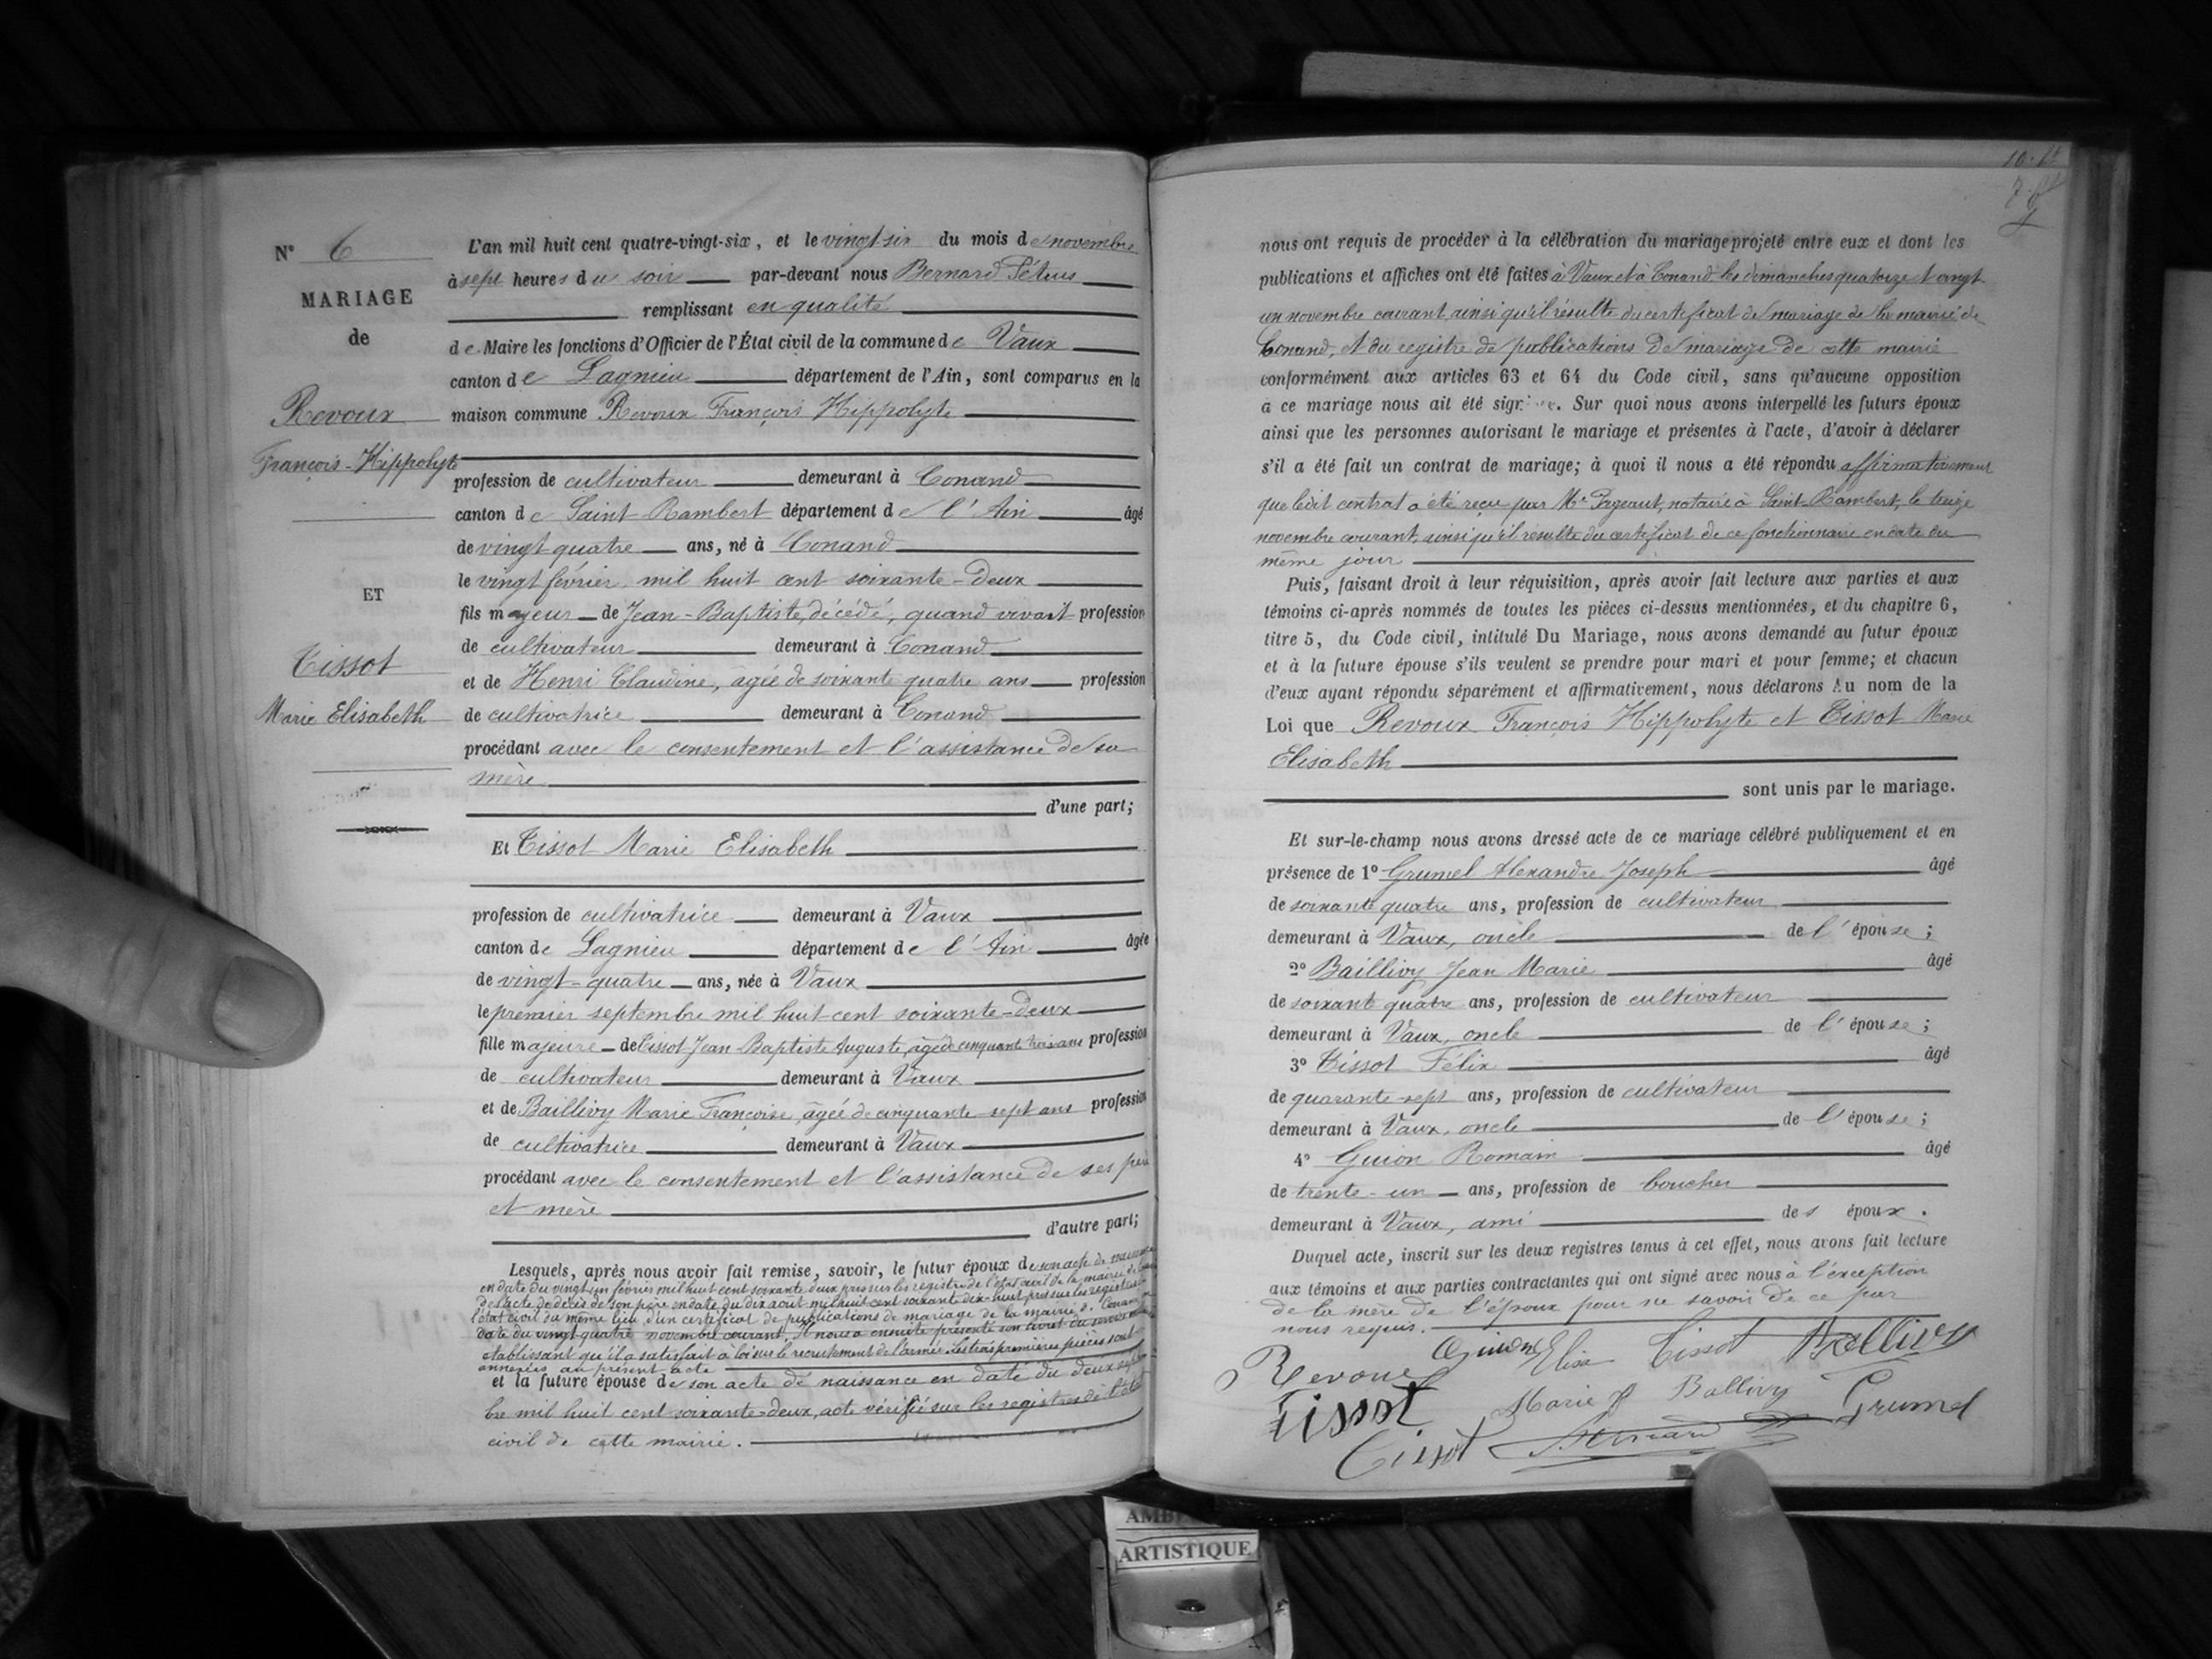 N° 6
MARIAGE
de
Revoux
François-Hippolyte
ET
Tissot
Marie Elisabeth
L'an mil huit cent quatre-vingt-six, et le vingt six du mois de novembre
à sept heures du soir par-devant nous Bernard Pétrus
remplissant en qualité
de Maire les fonctions d'Officier de l'État civil de la commune de Vaux
canton de Lagnieu département de l'Ain, sont comparus en la
maison commune Revoux François Hippolyte
profession de cultivateur demeurant à Conand
canton de Saint-Rambert département de l'Ain âgé
de vingt quatre ans, né à Conand
le vingt février mil huit cent soixante-deux
fils majeur de Jean-Baptiste, décédé, quand vivant profession
de cultivateur demeurant à Conand
et de Henri Claudine, âgée de soixante quatre ans profession
de cultivatrice demeurant à Conand
procédant avec le consentement et l'assistance de sa
mère
d'une part;
Et Tissot Marie Elisabeth
profession de cultivatrice demeurant à Vaux
canton de Lagnieu département de l'Ain âgée
de vingt-quatre ans, née à Vaux
le premier septembre mil huit cent soixante-deux
fille majeure de Tissot Jean Baptiste Auguste, âgé de cinquante trois ans profession
de cultivateur demeurant à Vaux
et de Baillivy Marie Françoise, âgée de cinquante sept ans profession
de cultivatrice demeurant à Vaux
procédant avec le consentement et l'assistance de ses père
et mère
d'autre part;
Lesquels, après nous avoir fait remise, savoir, le futur époux de son acte de naissance
en date du vingt un février mil huit cent soixante deux pris sur les registres de l'état civil de la mairie de
de l'acte de décès de son père en date du dix août mil huit cent soixante dix-huit pris sur les registres de
l'état civil du même lieu, d'un certificat de publications de mariage de la mairie de Conand en
date du vingt quatre novembre courant. Il nous a ensuite présenté son livret du service
établissant qu'il a satisfait à la loi sur le recrutement de l'armée. Les trois premières pièces sont
annexées au présent acte
et la future épouse de son acte de naissance en date du deux septem
bre mil huit cent soixante-deux, acte vérifié sur les registres de l'état
civil de cette mairie.
nous ont requis de procéder à la célébration du mariage projeté entre eux et dont les
publications et affiches ont été faites à Vaux et à Conand les dimanches quatorze et vingt
un novembre courant ainsi qu'il résulte du certificat de mariage de la mairie de
Conand, et du registre de publications de mariage de cette mairie
conformément aux articles 63 et 64 du Code civil, sans qu'aucune opposition
à ce mariage nous ait été signifiée. Sur quoi nous avons interpellé les futurs époux
ainsi que les personnes autorisant le mariage et présentes à l'acte, d'avoir à déclarer
s'il a été fait un contrat de mariage; à quoi il nous a été répondu affirmativement
que ledit contrat a été reçu par Me Pageaut, notaire à Saint-Rambert, le treize
novembre courant, ainsi qu'il résulte du certificat de ce fonctionnaire en date du
même jour
Puis, faisant droit à leur réquisition, après avoir fait lecture aux parties et aux
témoins ci-après nommés de toutes les pièces ci-dessus mentionnées, et du chapitre 6,
titre 5, du Code civil, intitulé Du Mariage, nous avons demandé au futur époux
et à la future épouse s'ils veulent se prendre pour mari et pour femme; et chacun
d'eux ayant répondu séparément et affirmativement, nous déclarons Au nom de la
Loi que Revoux François Hippolyte et Tissot Marie
Elisabeth
sont unis par le mariage.
Et sur-le-champ nous avons dressé acte de ce mariage célébré publiquement et en
présence de 1° Grumel Alexandre Joseph âgé
de soixante quatre ans, profession de cultivateur
demeurant à Vaux, oncle de l'épouse;
2° Baillivy Jean Marie âgé
de soixante quatre ans, profession de cultivateur
demeurant à Vaux, oncle de l'épouse;
3° Tissot Félix âgé
de quarante-sept ans, profession de cultivateur
demeurant à Vaux, oncle de l'épouse;
4° Guion Romain âgé
de trente-un ans, profession de boucher
demeurant à Vaux, ami des époux.
Duquel acte, inscrit sur les deux registres tenus à cet effet, nous avons fait lecture
aux témoins et aux parties contractantes qui ont signé avec nous à l'exception
de la mère de l'époux pour ne savoir de ce par
nous requis.
Revoux Guion Elisa Tissot Ballivy
Tissot Marie Ballivy Grumel
Tissot Bernard
AMB
ARTISTIQUE